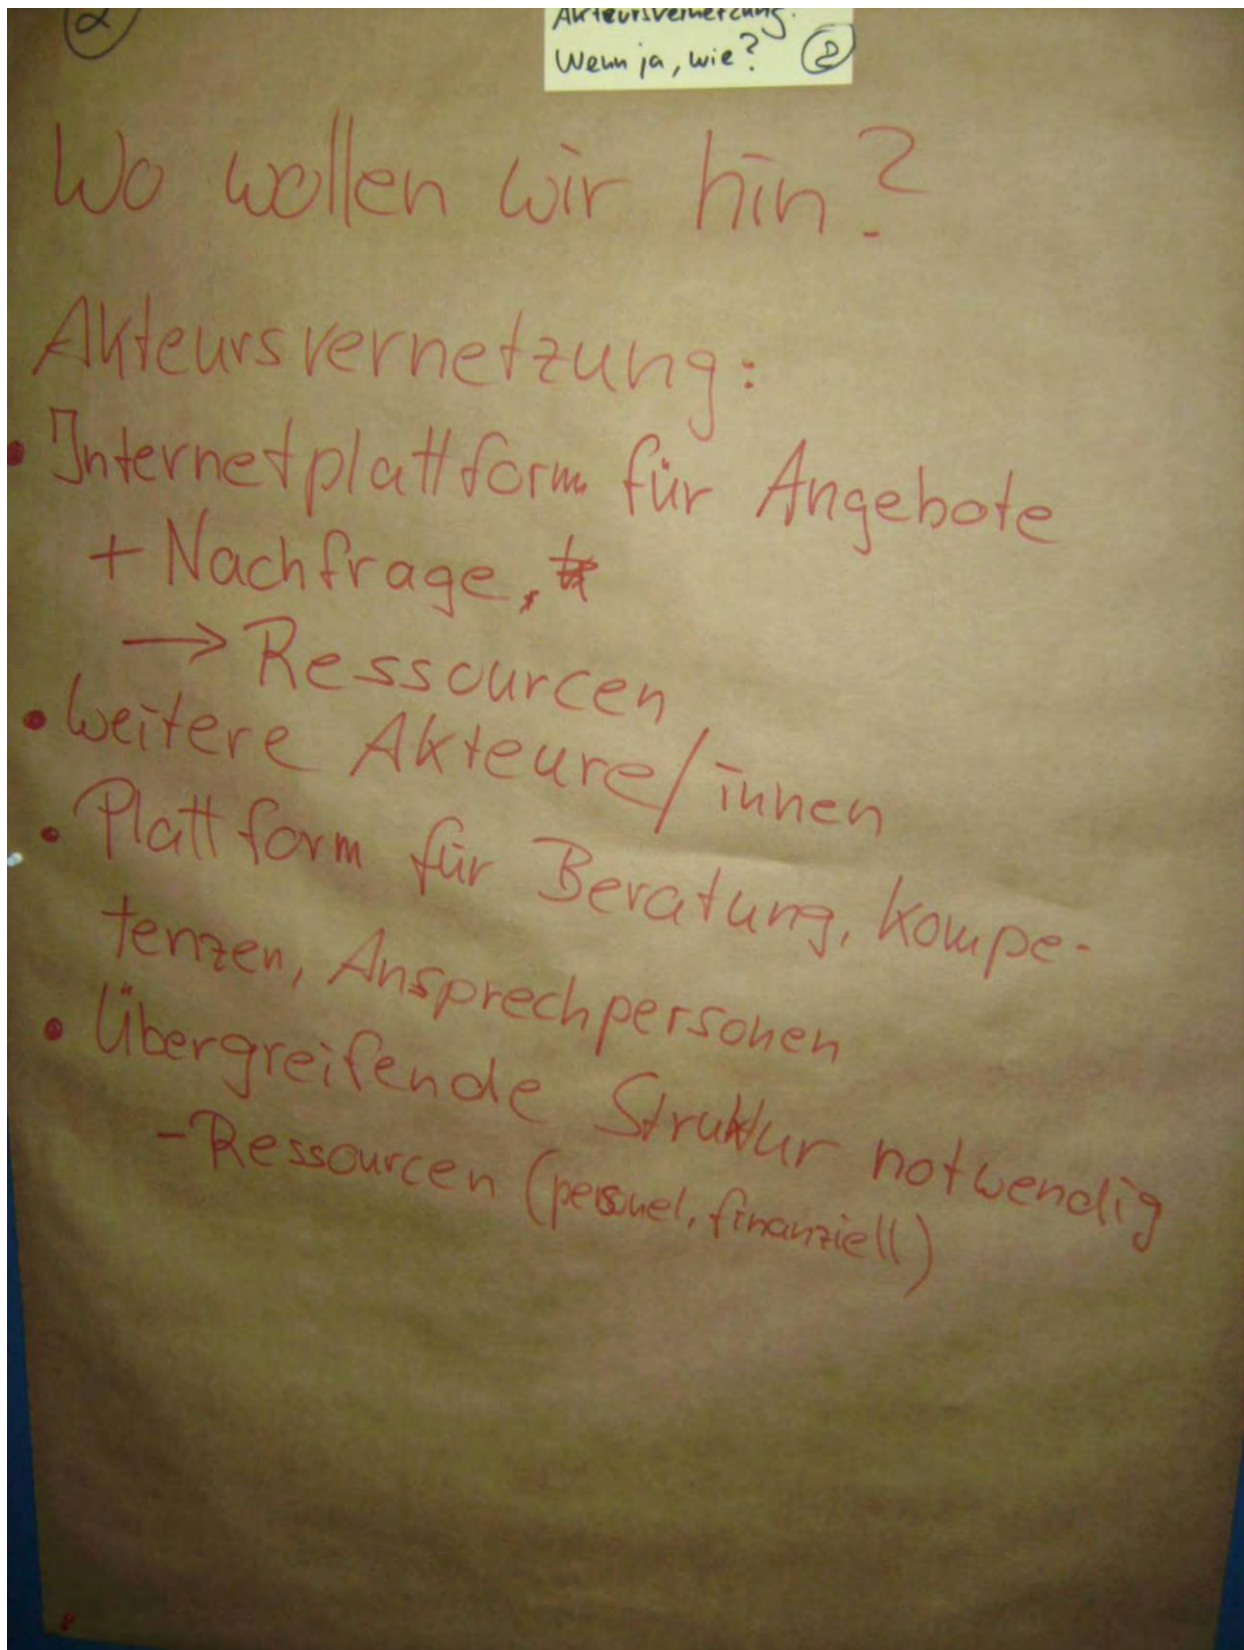 2
Akteursvernetzung.
Wenn ja, wie? 2
Wo wollen wir hin?
Akteursvernetzung:
• Internetplattform für Angebote
+ Nachfrage,
→ Ressourcen
• weitere Akteure/innen
• Plattform für Beratung, Kompe-
tenzen, Ansprechpersonen
• Übergreifende Struktur notwendig
- Ressourcen (personel, finanziell)